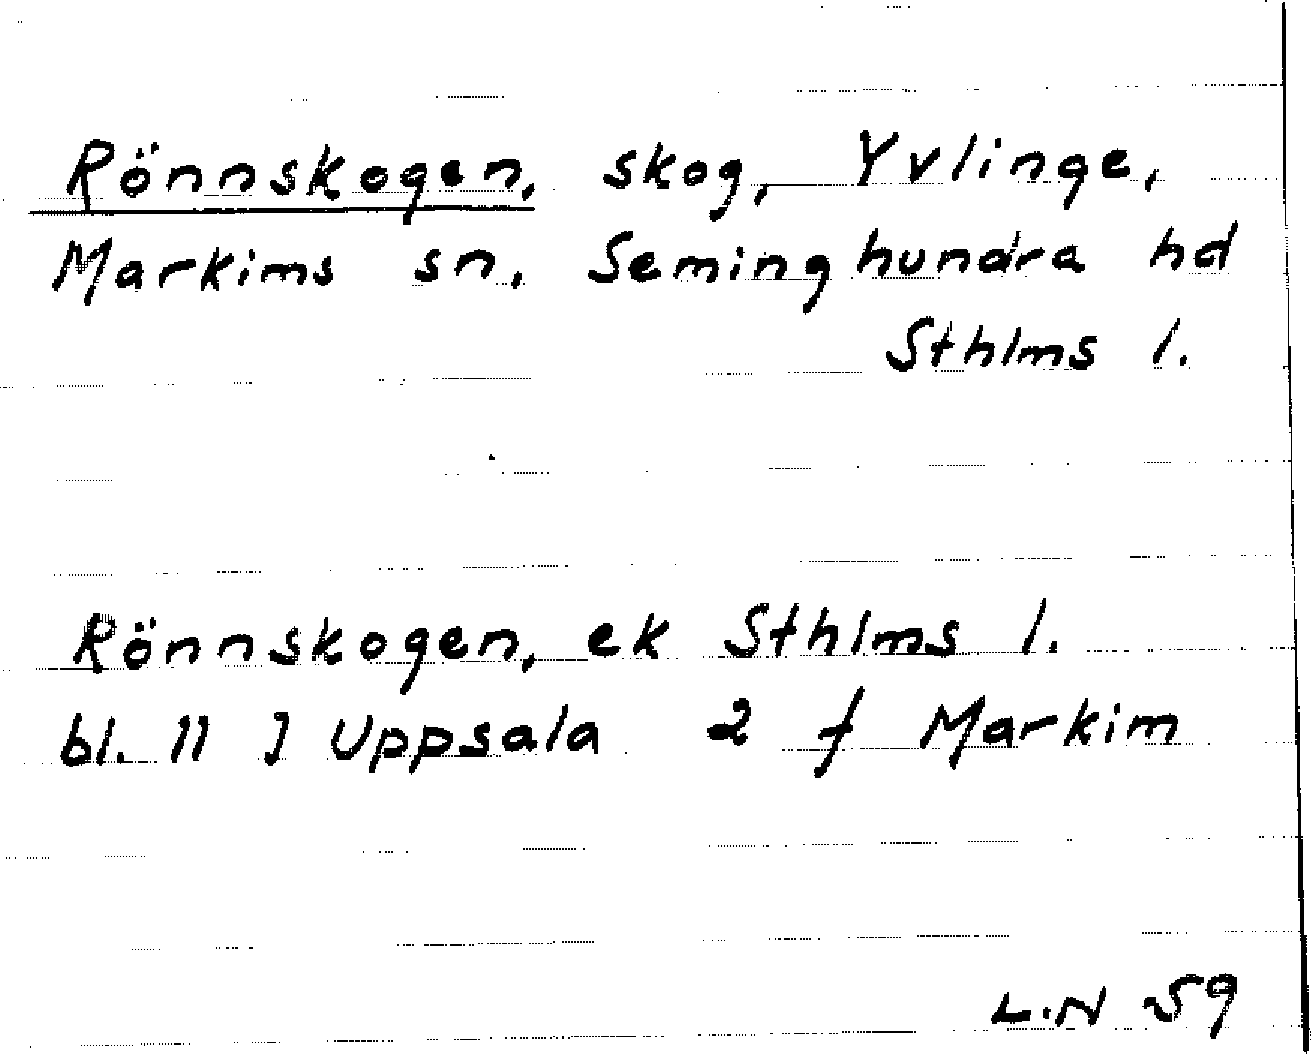 Rönnskogen, skog, Yvlinge,
Markims sn. Seminghundra hd
Sthlms l.
Rönnskogen, ek Sthlms l.
bl. 11 J Uppsala 2 f Markim
L.N 59